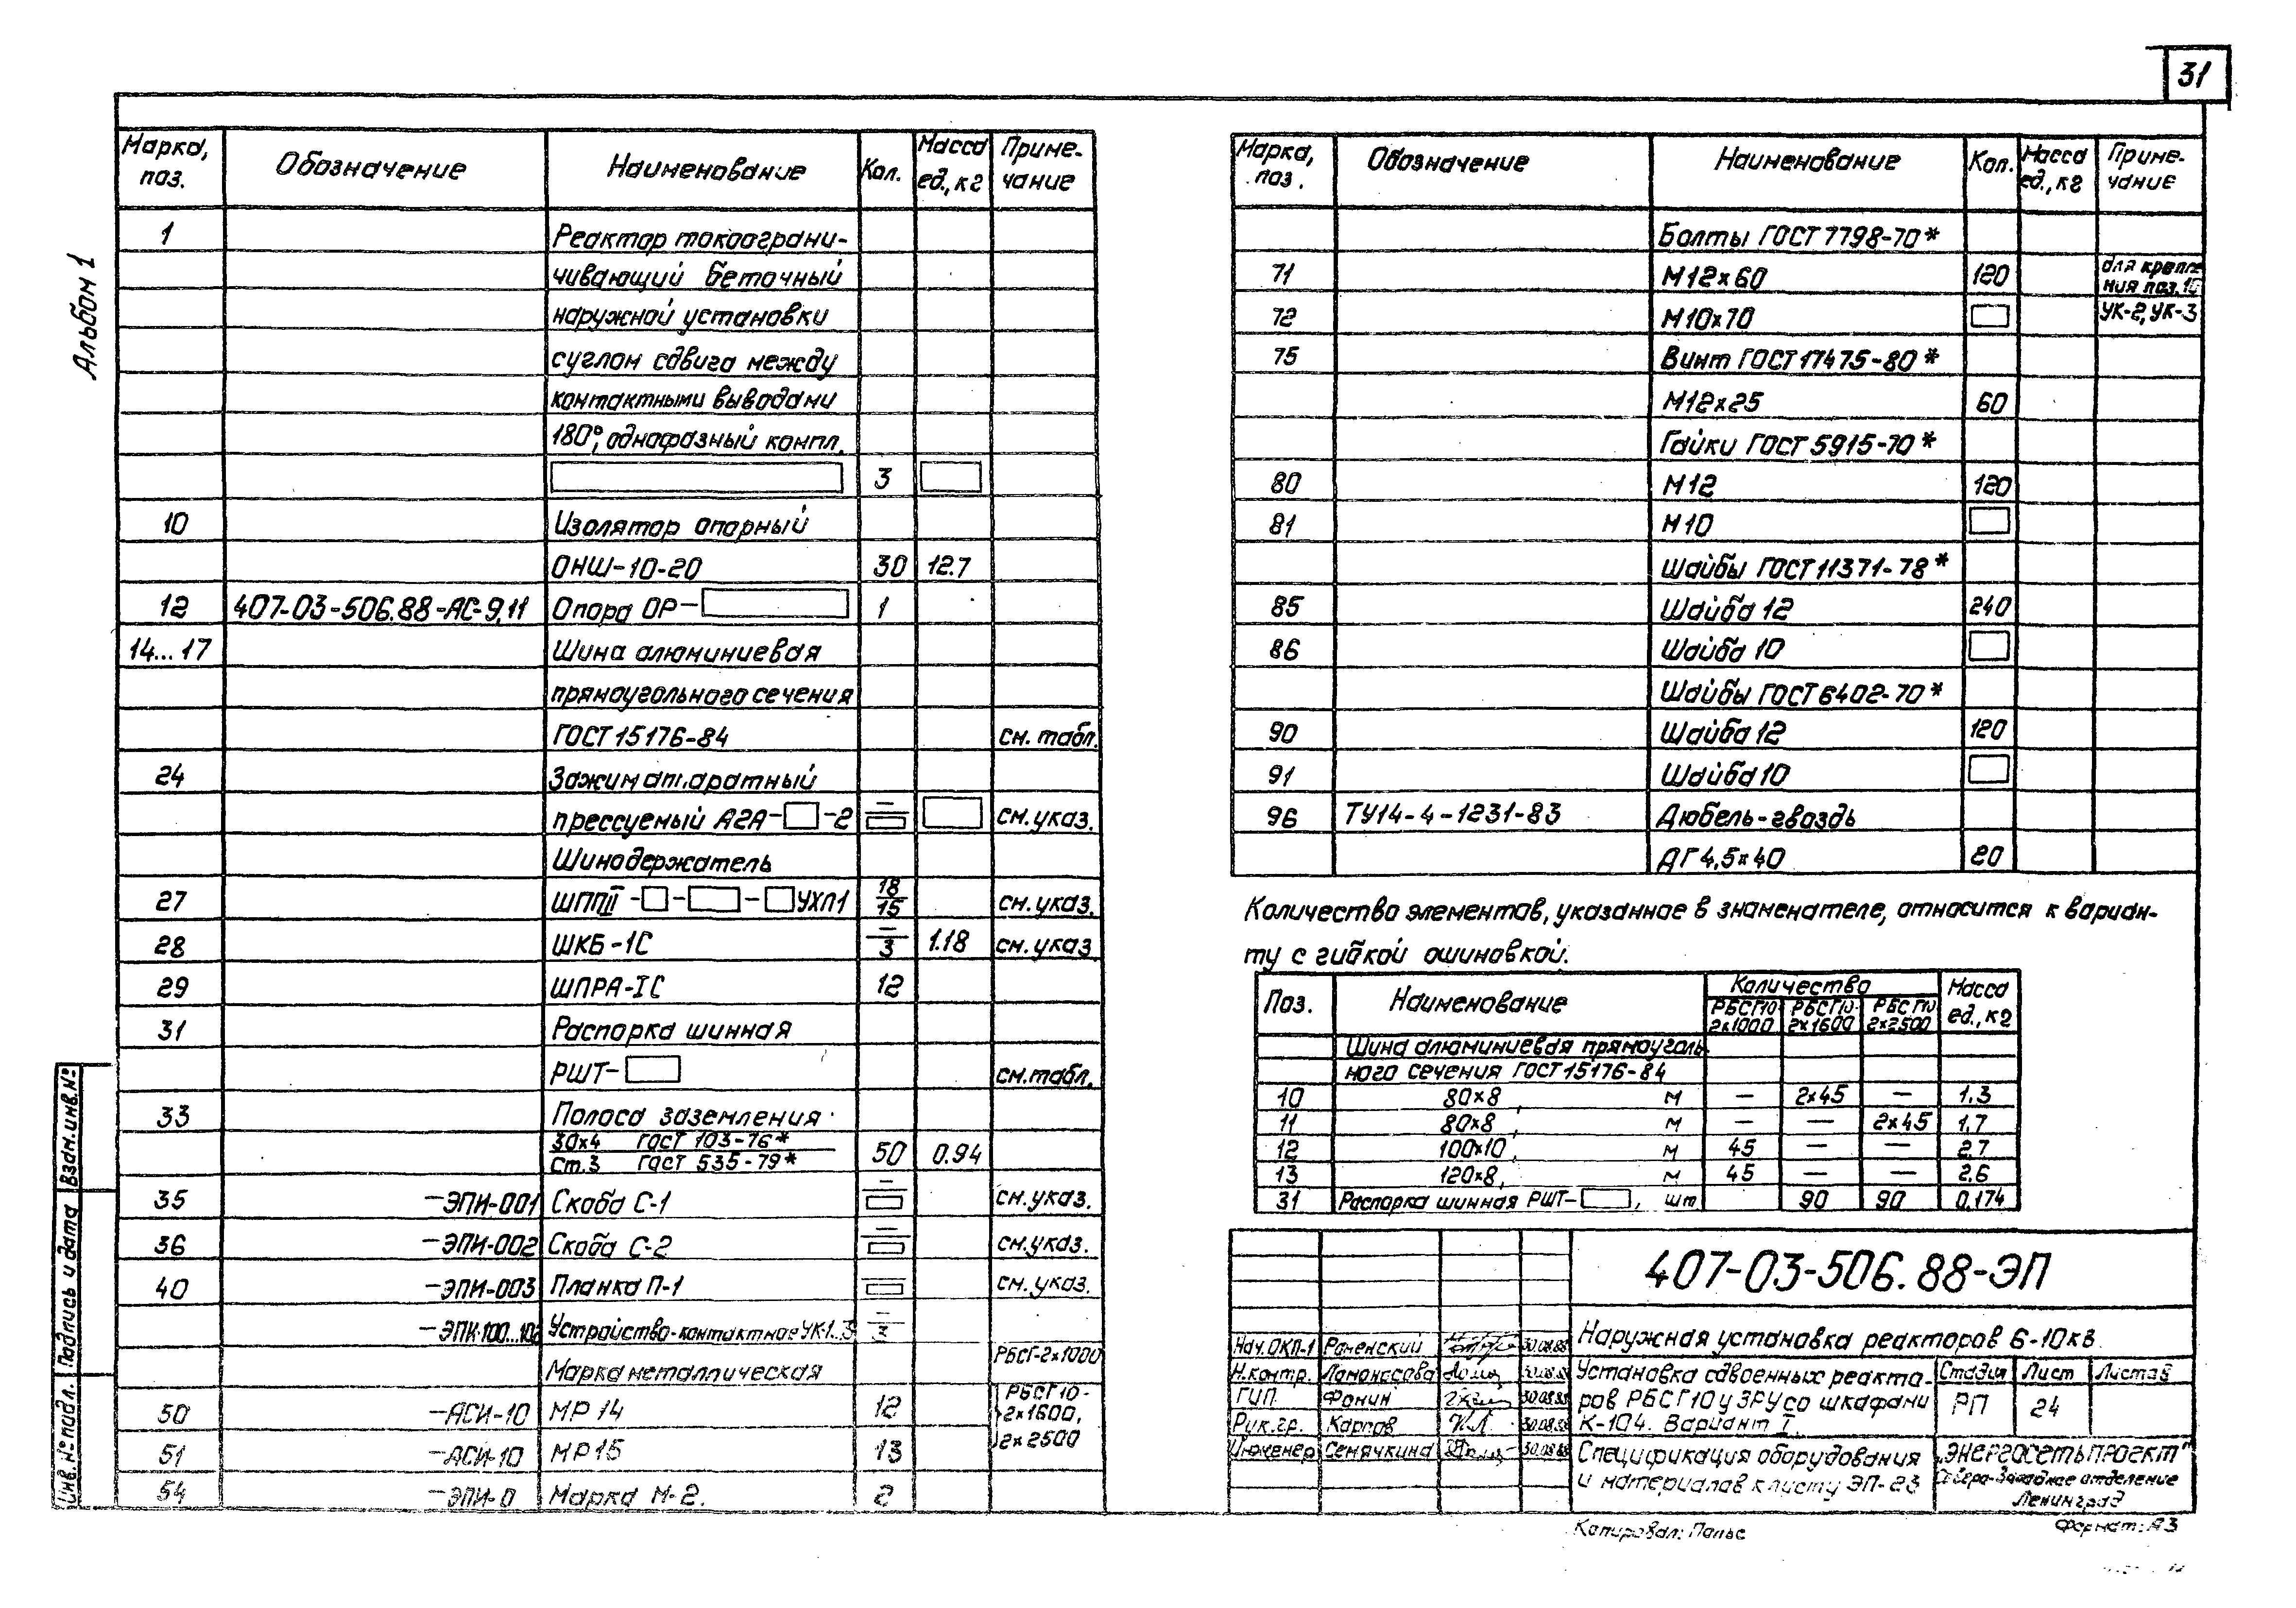 31
Альбом 1
Марка, поз. Обозначение Наименование Кол. Масса ед., кг Приме-чание
1 Реактор токоограни-
чивающий бетонный
наружной установки
с углом сдвига между
контактными выводами
180°, однофазный компл.
3
10 Изолятор опорный
ОНШ-10-20 30 12.7
12 407-03-506.88-АС-9,11 Опора ОР- 1
14...17 Шина алюминиевая
прямоугольного сечения
ГОСТ 15176-84 см. табл.
24 Зажим аппаратный
прессуемый А2А- -2 — см. указ.
Шинодержатель
27 ШППII- - - УХЛ1 18/15 см. указ.
28 ШКБ-1С —/3 1.18 см. указ
29 ШПРА-1С 12
31 Распорка шинная
РШТ- см. табл.
33 Полоса заземления
30х4 ГОСТ 103-76*
Ст.3 ГОСТ 535-79* 50 0.94
35 —ЭПИ-001 Скоба С-1 — см. указ.
36 —ЭПИ-002 Скоба С-2 — см. указ.
40 —ЭПИ-003 Планка П-1 — см. указ.
—ЭПИ-100...102 Устройство контактное УК-1...3 —/3
Марка металлическая РБСГ-2х1000
50 —АСИ-10 МР 14 12 РБСГ10-2х1600,
51 —АСИ-10 МР 15 13 2х2500
54 —ЭПИ-0 Марка М-2. 2
Марка, поз. Обозначение Наименование Кол. Масса ед., кг Приме-чание
Болты ГОСТ 7798-70*
71 М12х60 120 для крепле ния поз. 10
72 М10х70 УК-2, УК-3
75 Винт ГОСТ 17475-80*
М12х25 60
Гайки ГОСТ 5915-70*
80 М12 120
81 М10
Шайбы ГОСТ 11371-78*
85 Шайба 12 240
86 Шайба 10
Шайбы ГОСТ 6402-70*
90 Шайба 12 120
91 Шайба 10
96 ТУ14-4-1231-83 Дюбель-гвоздь
ДГ 4,5х40 20
Количество элементов, указанное в знаменателе, относится к вариан-
ту с гибкой ошиновкой.
Поз. Наименование Количество Масса ед., кг
РБСГ10-2х1000 РБСГ10-2х1600 РБСГ10 2х2500
Шина алюминиевая прямоуголь-
ного сечения ГОСТ 15176-84
10 80х8, м — 2х45 — 1.3
11 80х8, м — — 2х45 1,7
12 100х10, м 45 — — 2,7
13 120х8, м 45 — — 2,6
31 Распорка шинная РШТ- , шт 90 90 0,174
407-03-506.88-ЭП
Нач.ОКП-1 Раменский 30.08.88 Наружная установка реакторов 6-10кв
Н.контр. Ломоносова Установка сдвоенных реакто- Стадия Лист Листов
ГИП Фомин 30.08.88 ров РБСГ10 у ЗРУ со шкафами РП 24
Рук.гр. Карпов 30.08.88 К-104. Вариант I.
Инженер Семячкина 30.08.88 Спецификация оборудования „Энергосетьпроект"
и материалов к листу ЭП-23 Северо-Западное отделение
Ленинград
Копировал: Формат: А3
Инв. № подл. Подпись и дата Взам. инв. №